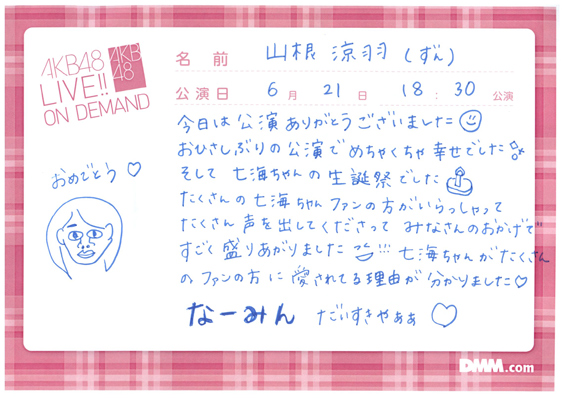 AKB48
LIVE!!
ON DEMAND
AKB
48
名前 山根 涼羽 (ずん)
公演日 6月 21日 18:30 公演
今日は公演ありがとうございました
おひさしぶりの公演でめちゃくちゃ幸せでした
そして 七海ちゃんの生誕祭でした
たくさんの七海ちゃんファンの方がいらっしゃって
たくさん声を出してくださって みなさんのおかげで
すごく盛りあがりました !!! 七海ちゃんがたくさん
のファンの方に愛されてる理由が分かりました♡
なーみん だいすきやぁぁ ♡
おめでとう ♡
DMM.com